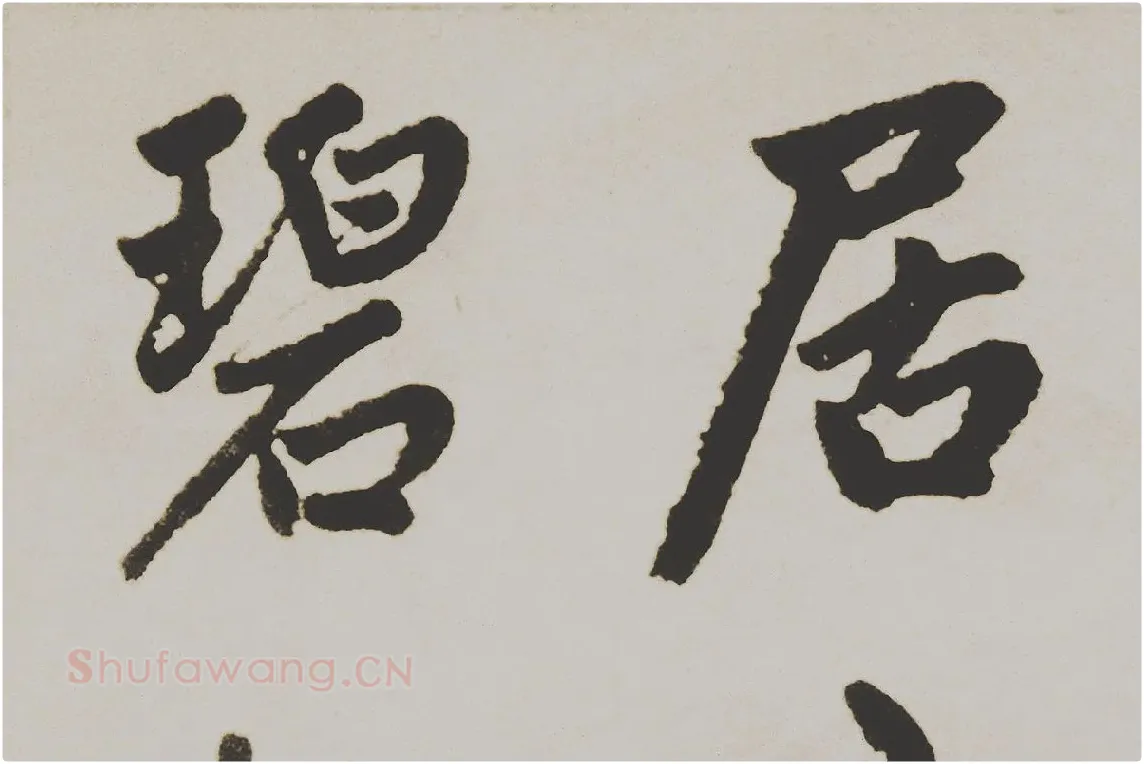 居
碧
Shufawang.CN